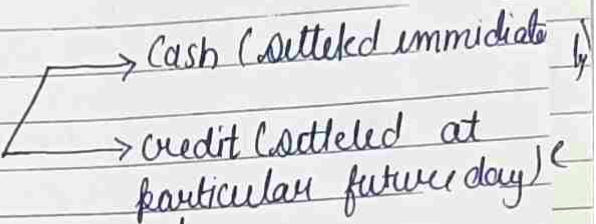 Cash (settekd immidiately)
credit (setteled at
particular future day)